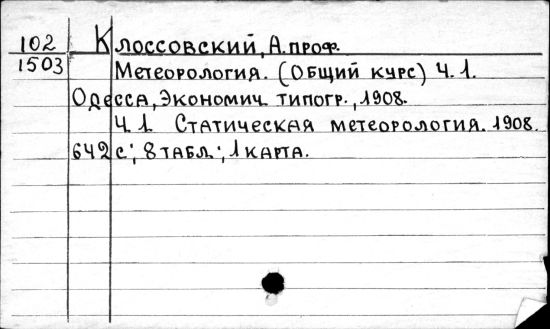 102 Клоссовский, А. проф.
1503 Метеорология. (Общий курс) Ч. 1.
Одесса, Экономич. типогр., 1908.
Ч. 1. Статическая метеорология. 1908.
642 с; 8 табл.; 1 карта.